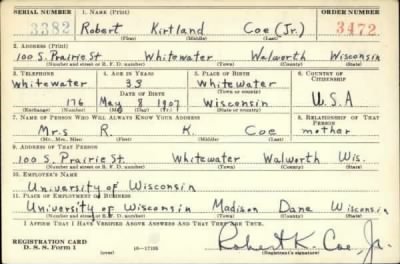 SERIAL NUMBER 1. NAME (Print) ORDER NUMBER
3382 Robert Kirtland Coe (Jr.) 3472
(First) (Middle) (Last)
2. ADDRESS (Print)
100 S. Prairie St Whitewater Walworth Wisconsin
(Number and street or R. F. D. number) (Town) (County) (State)
3. TELEPHONE 4. AGE IN YEARS 5. PLACE OF BIRTH 6. COUNTRY OF CITIZENSHIP
Whitewater 33 Whitewater
DATE OF BIRTH (Town or county)
176 May 8 1907 Wisconsin U.S.A
(Exchange) (Number) (Mo.) (Day) (Yr.) (State or country)
7. NAME OF PERSON WHO WILL ALWAYS KNOW YOUR ADDRESS 8. RELATIONSHIP OF THAT PERSON
Mrs R. K. Coe mother
(Mr., Mrs., Miss) (First) (Middle) (Last)
9. ADDRESS OF THAT PERSON
100 S. Prairie St. Whitewater Walworth Wis.
(Number and street or R. F. D. number) (Town) (County) (State)
10. EMPLOYER'S NAME
University of Wisconsin
11. PLACE OF EMPLOYMENT OR BUSINESS
University of Wisconsin Madison Dane Wisconsin
(Number and street or R. F. D. number) (Town) (County) (State)
I AFFIRM THAT I HAVE VERIFIED ABOVE ANSWERS AND THAT THEY ARE TRUE.
REGISTRATION CARD
D. S. S. Form 1 (over) Robert K. Coe, Jr.
(Registrant's signature)